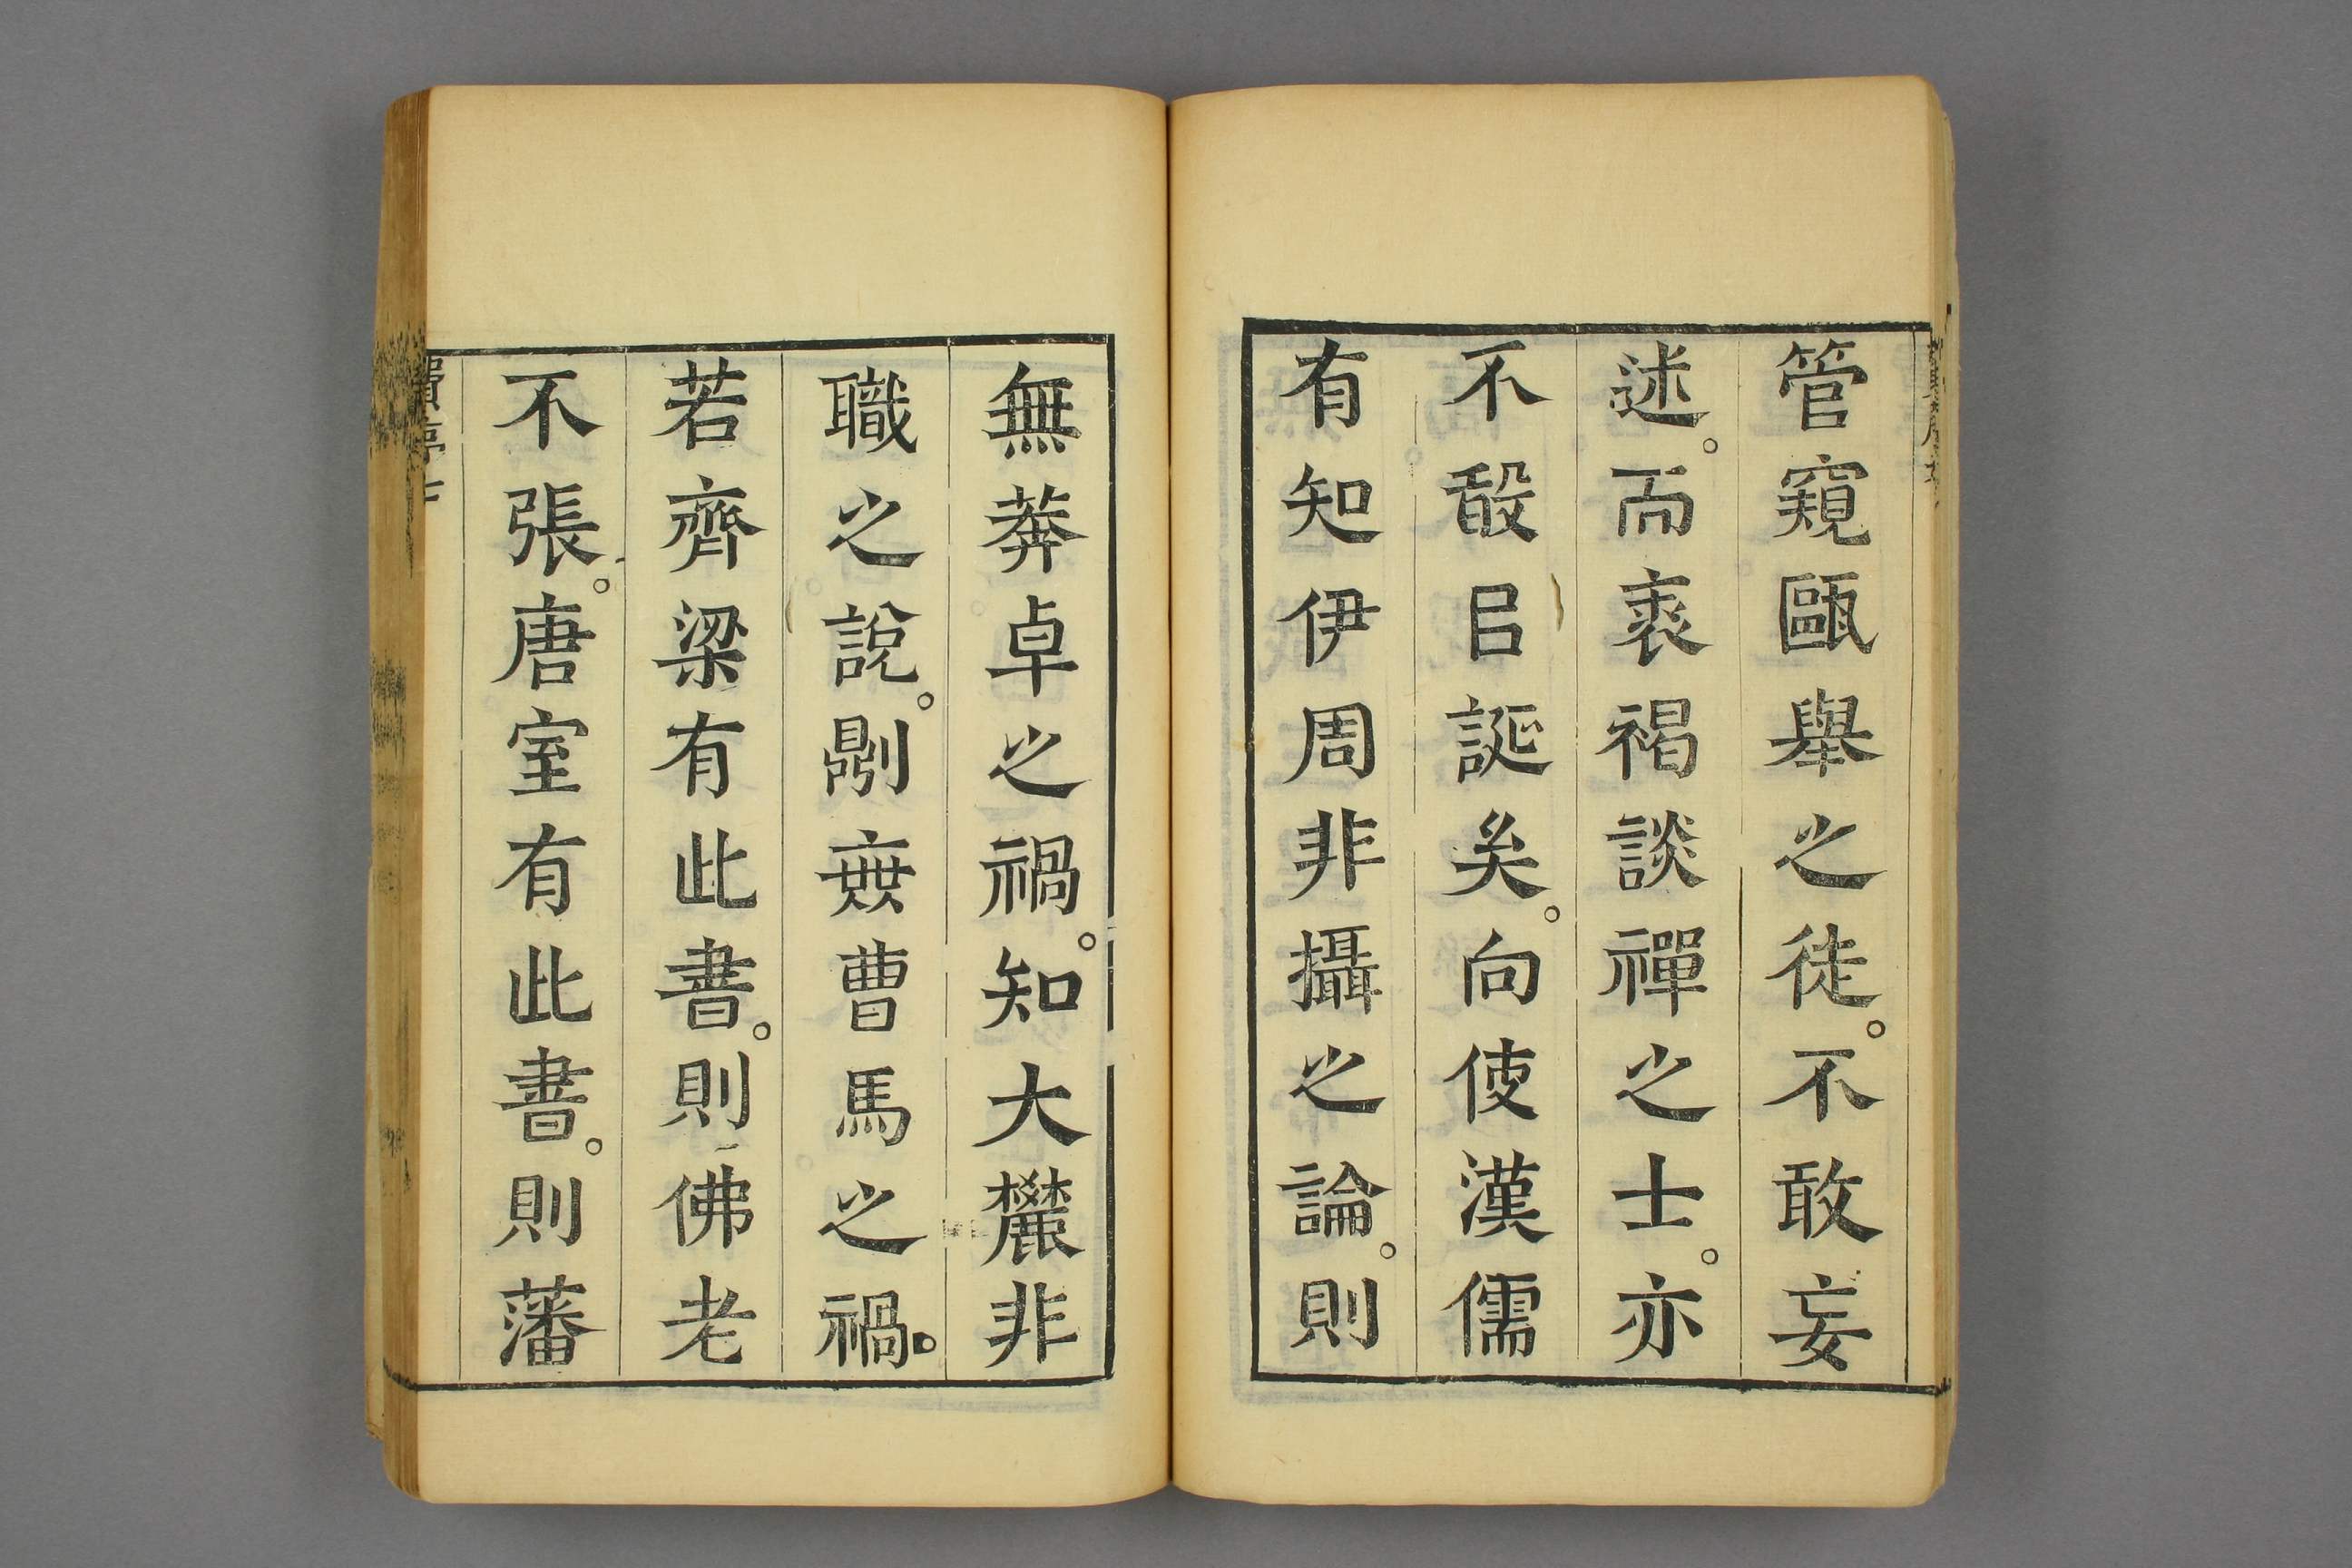 管窺甌舉之徒。不敢妄
述。而裘褐談禪之士。亦
不㪉㠯誕矣。向使漢儒
有知伊周非攝之論。則
無莽卓之禍。知大麓非
職之說。則無曹馬之禍。
若齊梁有此書。則佛老
不張。唐室有此書。則藩